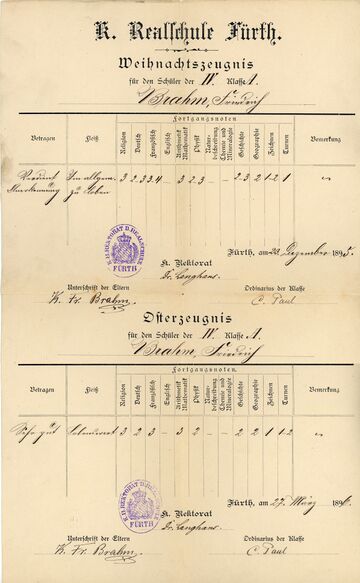 K. Realschule Fürth.
Weihnachtszeugnis
für den Schüler der IV. Klasse A.
Brahm, Friedrich
Fortgangsnoten.
Betragen Fleiß Religion Deutsch Französisch Englisch Arithmetik Mathematik Physik Naturbeschreibung Chemie und Mineralogie Geschichte Geographie Zeichnen Turnen Bemerkung
zu loben
K. B. REKTORAT D. REALSCHULE FÜRTH
Fürth, am 22. Dezember 1895.
K. Rektorat
Dr. Langhans.
Unterschrift der Eltern Ordinarius der Klasse
K. Fr. Brahm. C. Paul
Osterzeugnis
für den Schüler der IV. Klasse A.
Brahm, Friedrich
Fortgangsnoten.
Betragen Fleiß Religion Deutsch Französisch Englisch Arithmetik Mathematik Physik Naturbeschreibung Chemie und Mineralogie Geschichte Geographie Zeichnen Turnen Bemerkung
Sehr gut Lobenswert 3 2 3 – 3 2 – – 2 2 1 1-2
K. B. REKTORAT D. REALSCHULE FÜRTH
Fürth, am 27. März 1896.
K. Rektorat
Dr. Langhans.
Unterschrift der Eltern Ordinarius der Klasse
K. Fr. Brahm. C. Paul